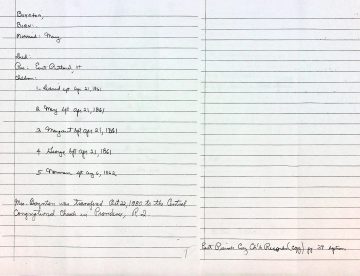 Boynton,
Born:
Married: Mary
Died:
Res: East Putland, Vt
Children:
1. Edward bpt Apr 21, 1861
2. Mary bpt Apr 21, 1861
3. Margaret bpt Apr 21, 1861
4. George bpt Apr 21, 1861
5. Norman bpt Aug 6, 1862
Mrs. Boynton was transferred Oct 22, 1880 to the Central
Congregational Church in Providence, R.I.
East Cong Ch Records (copy) pg 39 baptism